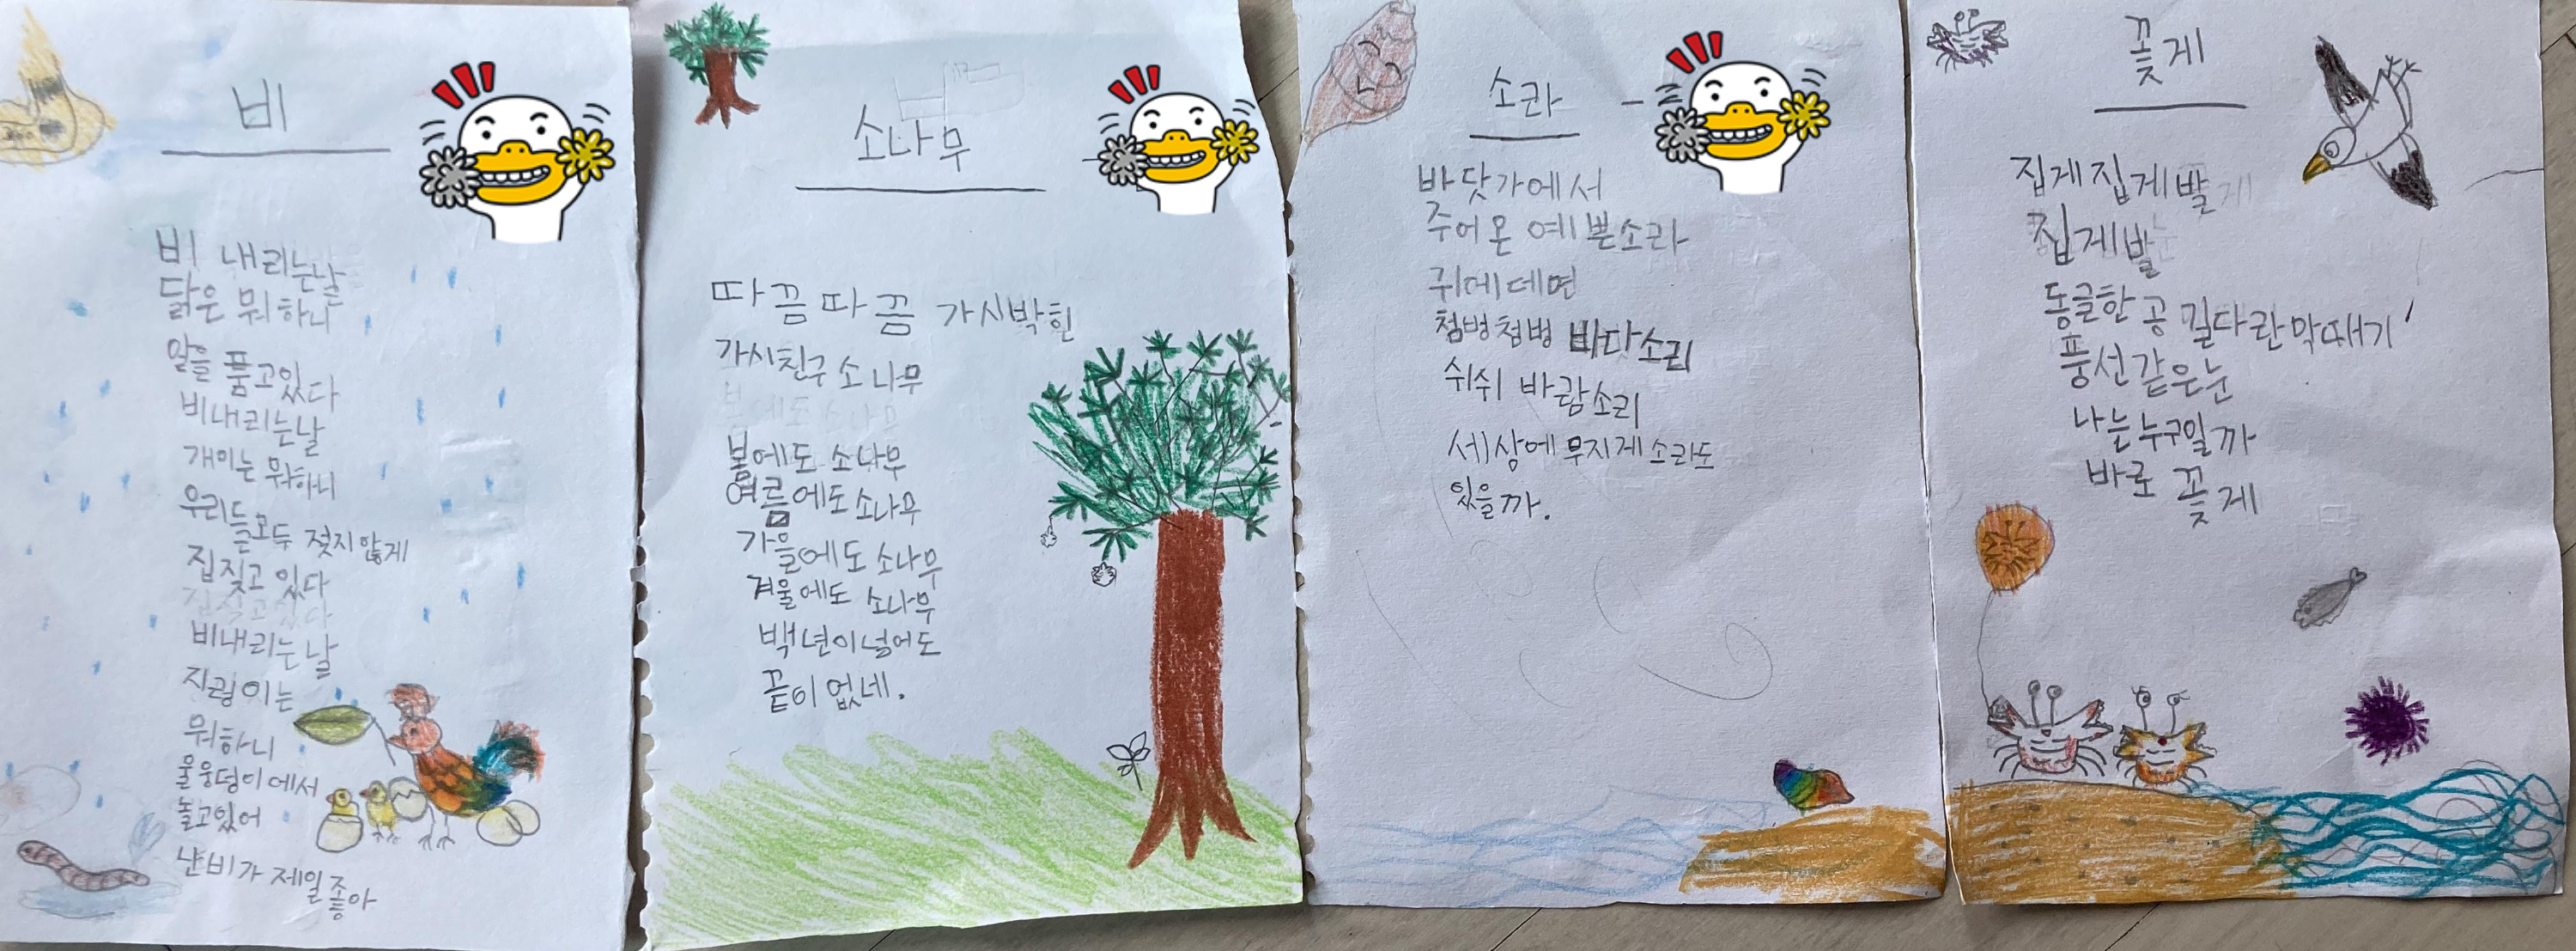 비
비 내리는날
닭은 뭐하니
알을 품고있다
비내리는날
개미는 뭐하니
우리들모두 젖지않게
집짖고 있다
비내리는 날
지렁이는
뭐하니
물웅덩이에서
놀고있어
난비가 제일좋아
소나무
따끔따끔 가시박힌
가시친구 소나무
봄에도 소나무
여름에도 소나무
가을에도 소나무
겨울에도 소나무
백년이넘어도
끝이 없네.
소라
바닷가에서
주어온 예쁜소라
귀에데면
첨벙첨벙 바다소리
쉬쉬 바람소리
세상에 무지게소라도
있을까.
꽃게
집게집게발
집게발
동글한 공 길다란막때기
풍선같은눈
나는누구일까
바로 꽃게